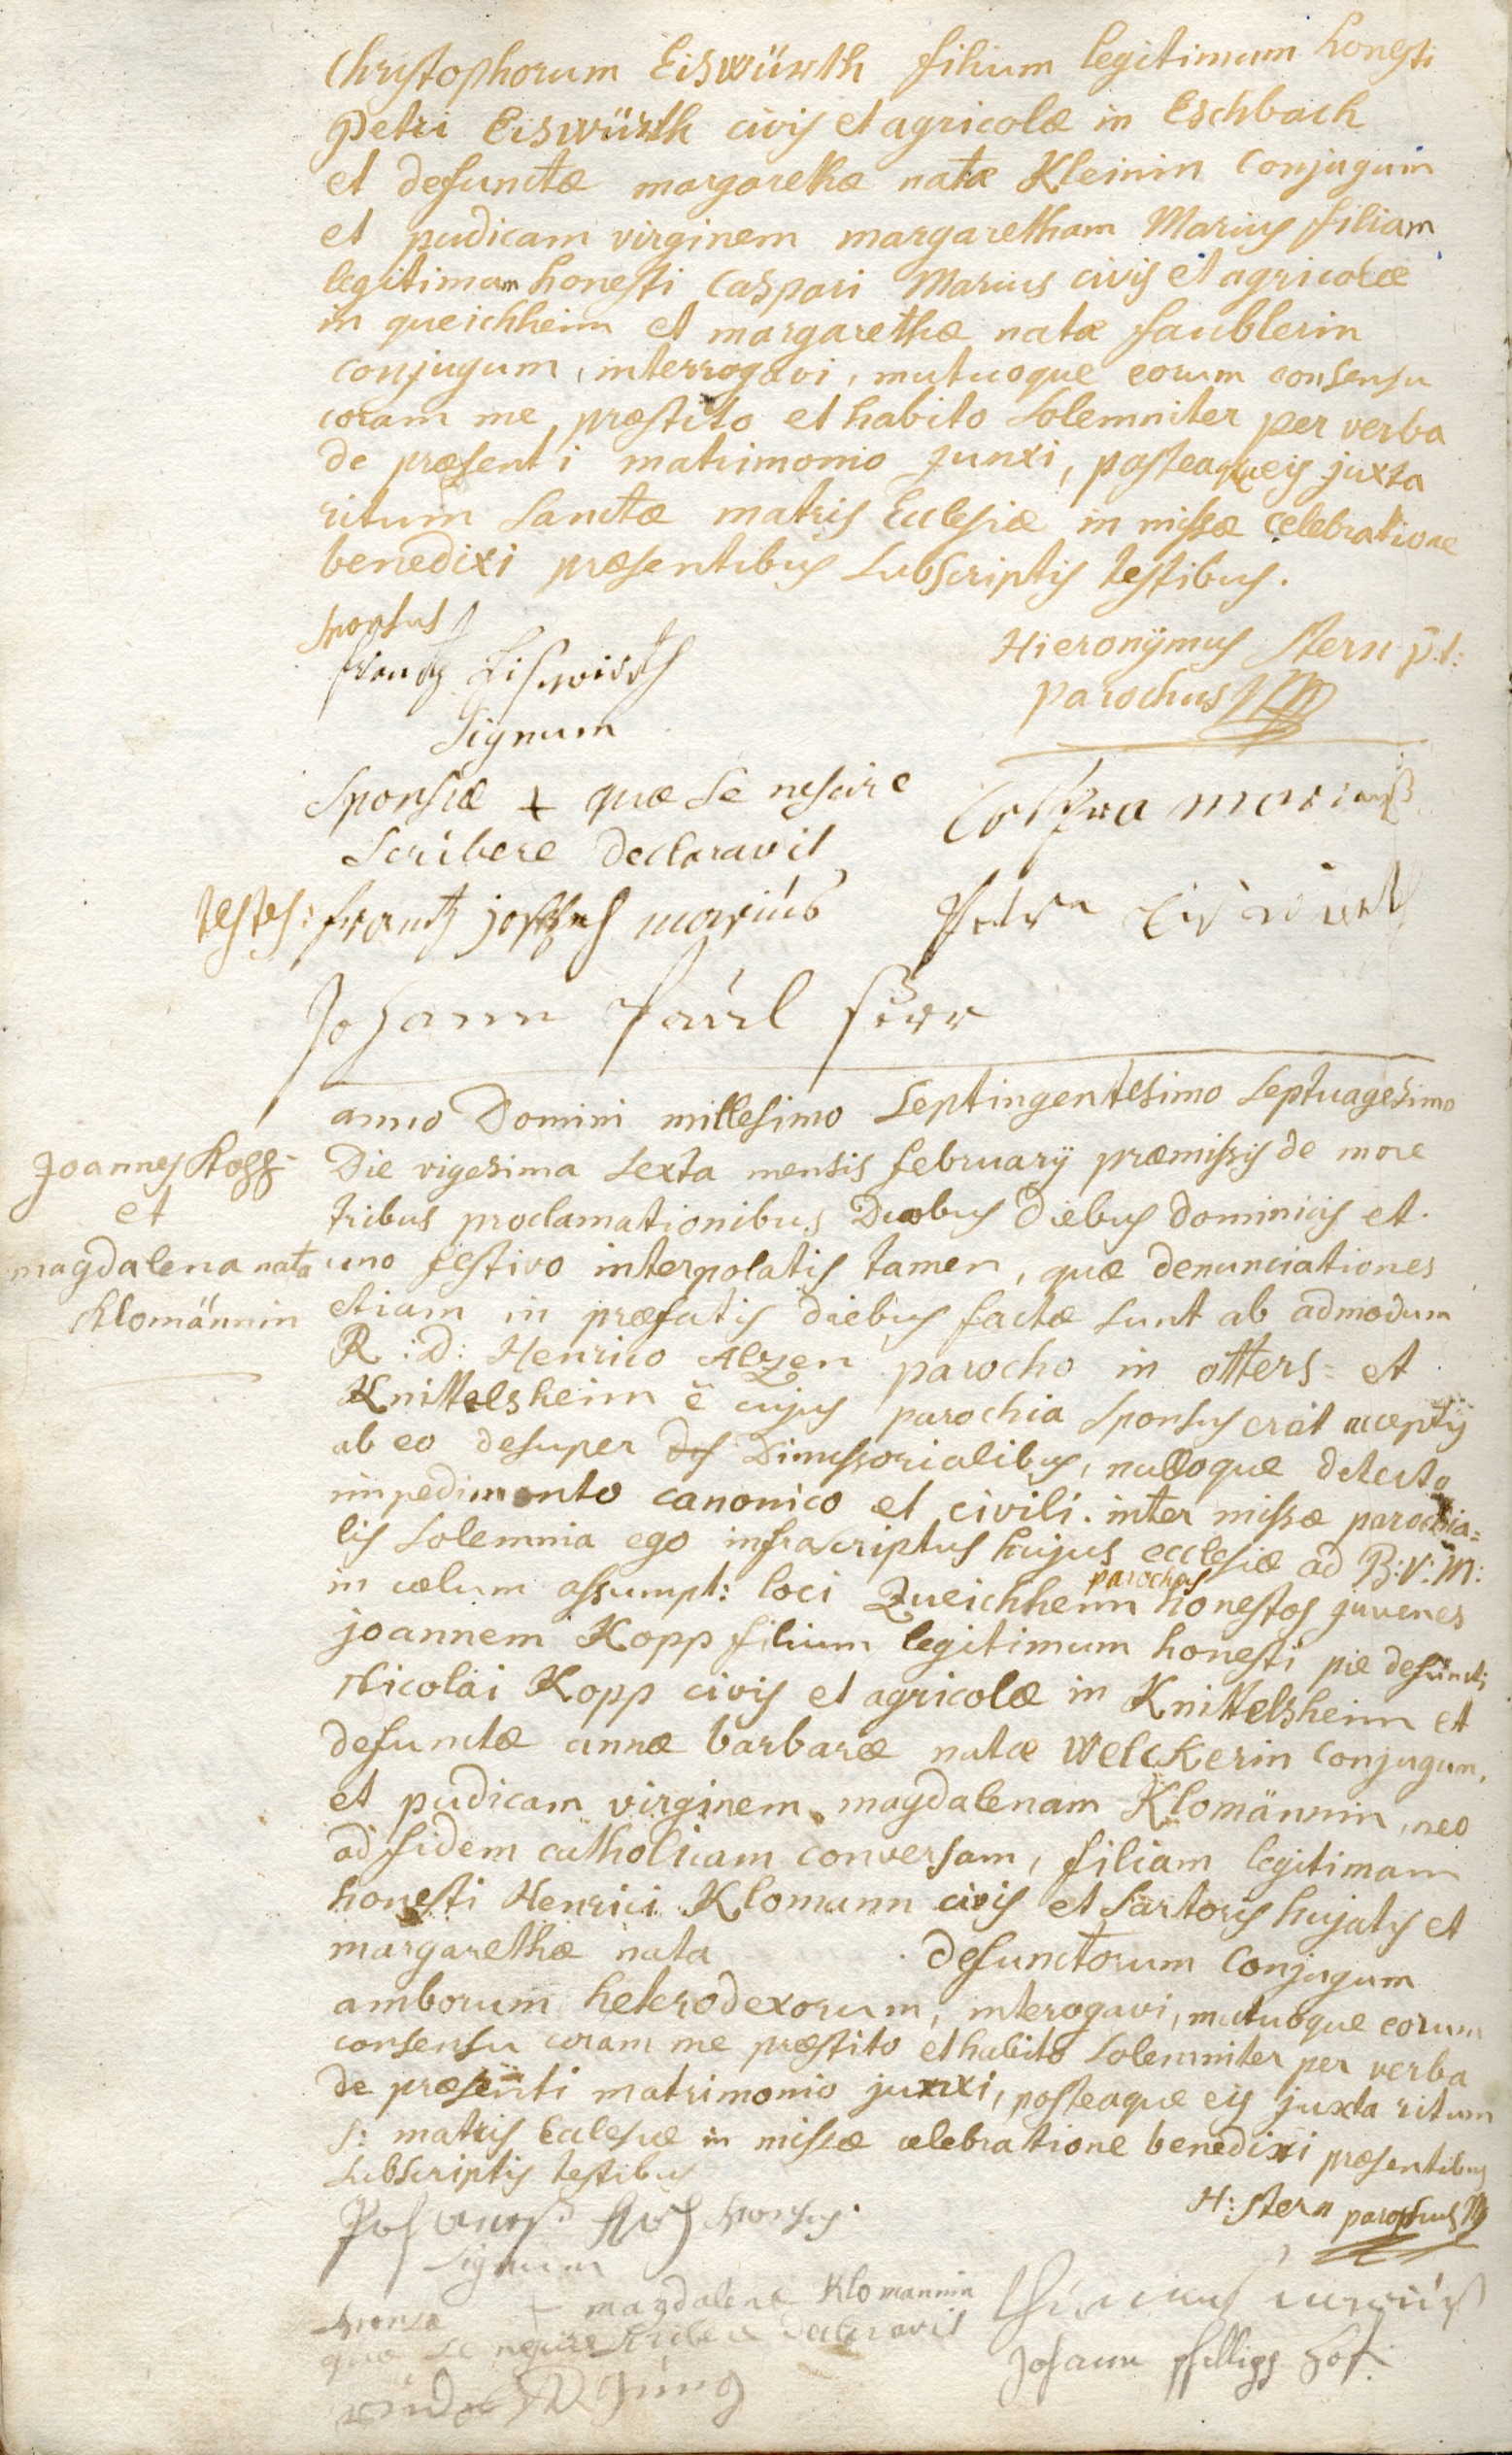 Christophorum Eiswürth filium legitimum honesti
Petri Eiswürth civis et agricolæ in Eschbach
et defunctæ margarethæ natæ Kleinin Conjugum
et pudicam virginem margaretham Marius filiam
legitimam honesti Caspari Marius civis et agricolæ
in queichheim et margarethæ natæ faublerin
conjugum, interrogavi, mutuoque eorum consensu
coram me præstito et habito Solemniter per verba
de præsenti matrimonio junxi, posteaque eis juxta
ritum Sanctæ matris Ecclesiæ in missæ celebratione
benedixi præsentibus Subscriptis testibus.
Sponsus
Hieronÿmus Stern p.t:
parochus
Signum
Sponsæ + quæ Se nescire
Scribere declaravit
testes: frantz joseph marius
Johann Paul
anno Domini millesimo Septingentesimo Septuagesimo
Joannes Kopp
et
magdalena nata
Klomännin
Die vigesima Sexta mensis februarÿ præmissis de more
tribus proclamationibus Duobus diebus dominicis et
uno festivo interpolatis tamen, quæ denunciationes
etiam in præfatis diebus factæ sunt ab admodum
R:D: Henrico Alzen parocho in otters= et
Knittelsheim ē cujus parochia Sponsus erat acceptis
ab eo desuper Dimissorialibus, nulloque detecto
impedimento canonico et civili. inter missæ parochia=
lis Solemnia ego infrascriptus hujus ecclesiæ ad B:V:M:
in cœlum assumpt: loci Queichheim parochus honestos juvenes
joannem Kopp filium legitimum honesti pie defuncti
Nicolai Kopp civis et agricolæ in Knittelsheim et
defunctæ annæ barbaræ natæ Welckerin Conjugum,
et pudicam virginem magdalenam Klomännin, neo
ad fidem catholicam conversam, filiam legitimam
honesti Henrici Klomann civis et Sartoris hujatis et
margarethæ nata defunctorum Conjugum
amborum heterodexorum, interogavi, mutuoque eorum
consensu coram me præstito et habito Solemniter per verba
de præsenti matrimonio junxi, posteaque eis juxta ritum
S: matris Ecclesiæ in missæ celebratione benedixi præsentibus
subscriptis testibus
H: Stern parochus
Sponsus
Signum
Sponsæ + magdalena Klomannin
quæ se nescire scribere declaravit
Johann Phillipp